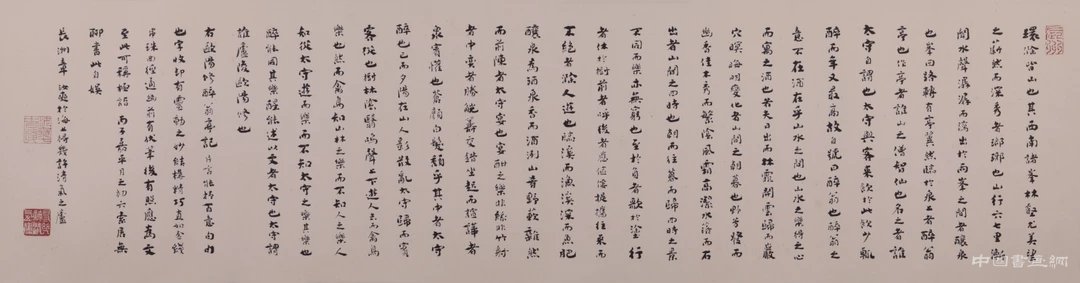 環滁皆山也其西南諸峯林壑尤美望
之蔚然而深秀者瑯琊也山行六七里漸
聞水聲潺潺而瀉出於兩峯之間者釀泉
也峯回路轉有亭翼然臨於泉上者醉翁
亭也作亭者誰山之僧智仙也名之者誰
太守自謂也太守與客來飲於此飲少輒
醉而年又最高故自號曰醉翁也醉翁之
意不在酒在乎山水之間也山水之樂得之心
而寓之酒也若夫日出而林霏開雲歸而巖
穴暝晦明變化者山間之朝暮也野芳發而
幽香佳木秀而繁陰風霜高潔水落而石
出者山間之四時也朝而往暮而歸四時之景
不同而樂亦無窮也至於負者歌於塗行
者休於樹前者呼後者應傴僂提攜往來而
不絕者滁人遊也臨溪而漁溪深而魚肥
釀泉為酒泉香而酒洌山肴野蔌雜然
而前陳者太守宴也宴酣之樂非絲非竹射
者中奕者勝觥籌交錯坐起而諠譁者
衆賓懽也蒼顏白髮頹乎其中者太守
醉也已而夕陽在山人影散亂太守歸而賓
客從也樹林陰翳鳴聲上下遊人去而禽鳥
樂也然而禽鳥知山林之樂而不知人之樂人
知從太守遊而樂而不知太守之樂其樂也
醉能同其樂醒能述以文者太守也太守謂
誰廬陵歐陽修也
右歐陽修醉翁亭記
也字收却有靈動之妙結構精巧真如金錢
串珠曲徑通幽前有伏筆後有照應寫文
至此可稱極詣 丙子嘉平月之初六素居無
聊書此自娛
長洲章汝奭於海上得幾許清氣之廬
中国書画網